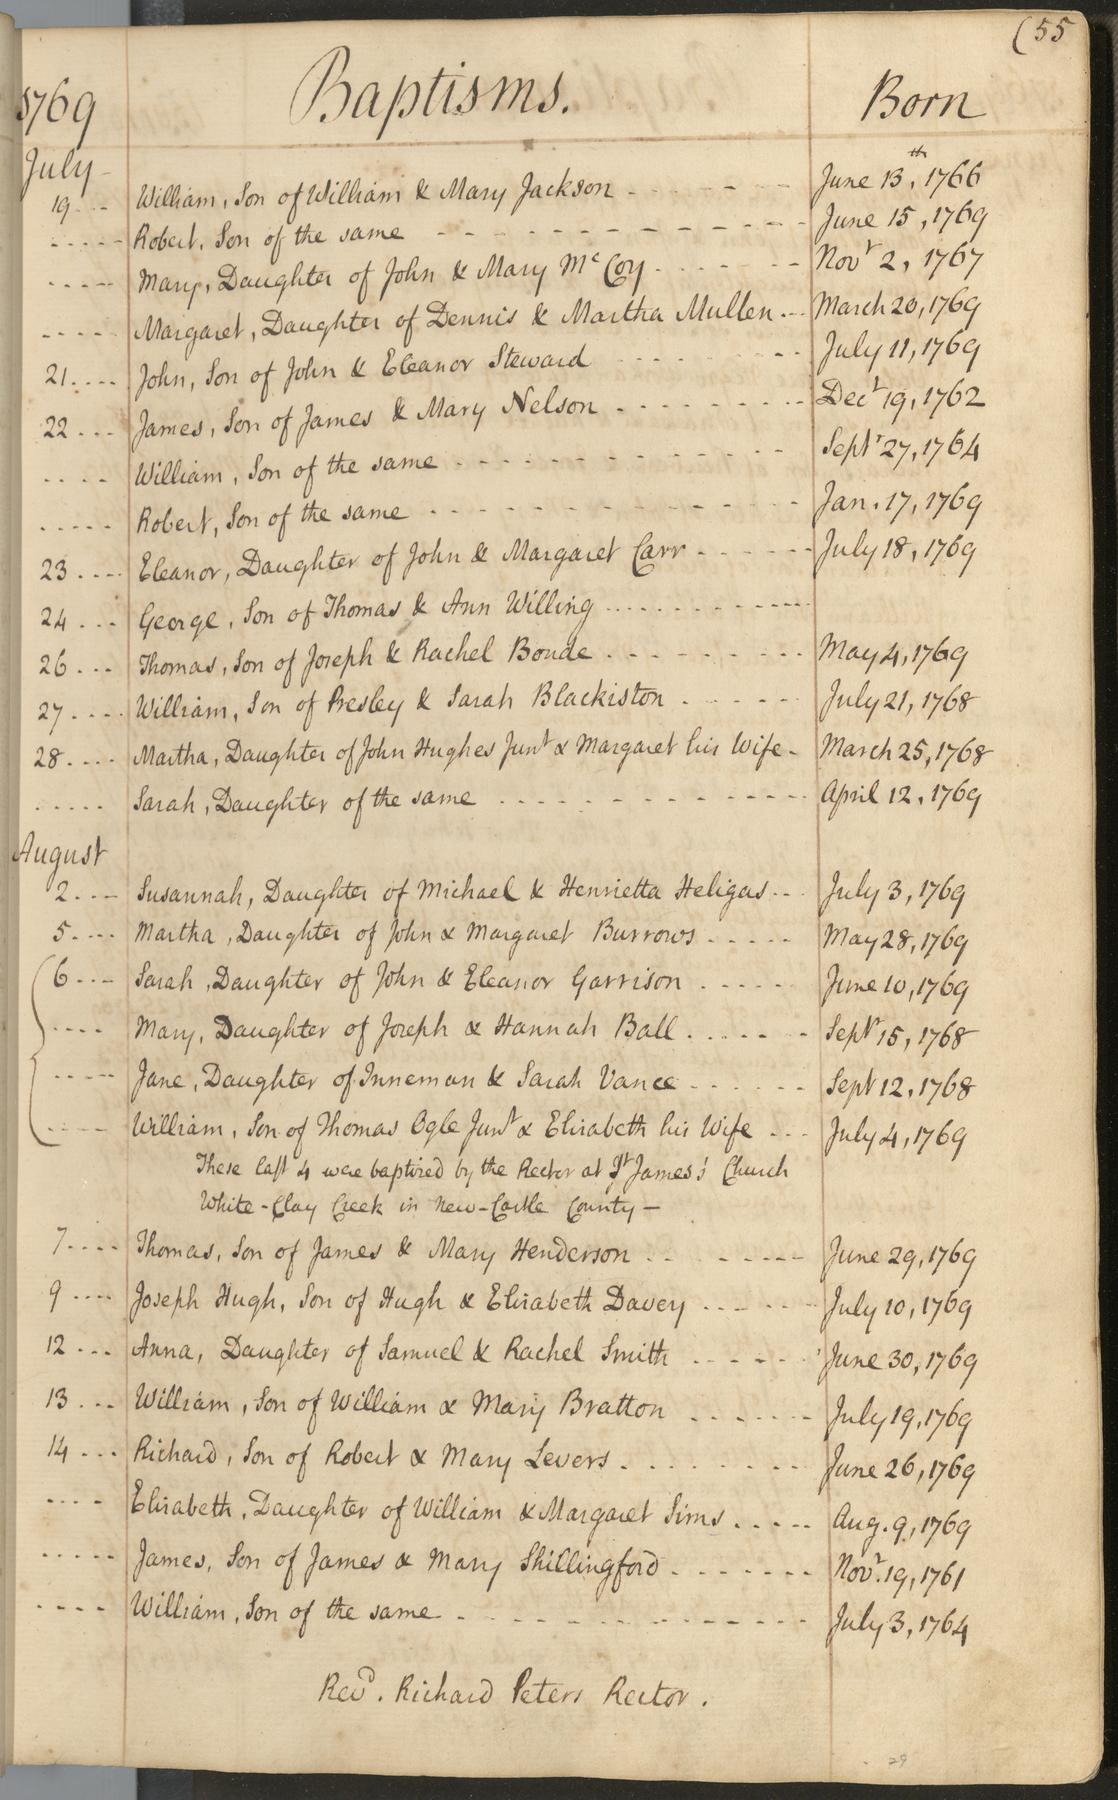 (55
1769 Baptisms. Born
July
19 - - William, Son of William & Mary Jackson - - - - - June 13th, 1766
- - - - - Robert, Son of the same - - - - - - - - - - June 15, 1769
- - - - - Mary, Daughter of John & Mary Mc Coy - - - - - - Novr 2, 1767
- - - - Margaret, Daughter of Dennis & Martha Mullen - - - March 20, 1769
21 - - - - John, Son of John & Eleanor Steward - - - - - - July 11, 1769
22 - - - James, Son of James & Mary Nelson - - - - - - - - Decr 19, 1762
- - - - William, Son of the same - - - - - - - - - - Septr 27, 1764
- - - - - Robert, Son of the same - - - - - - - - - - Jan. 17, 1769
23 - - - - Eleanor, Daughter of John & Margaret Carr - - - - - - July 18, 1769
24 - - - George, Son of Thomas & Ann Willing - - - - - - - - - -
26 - - - Thomas, Son of Joseph & Rachel Boude - - - - - - - - - May 4, 1769
27 - - - - William, Son of Presley & Sarah Blackiston - - - - - - July 21, 1768
28 - - - - Martha, Daughter of John Hughes Junr & Margaret his Wife - March 25, 1768
- - - - - Sarah, Daughter of the same - - - - - - - - - - - April 12, 1769
August
2 - - - Susannah, Daughter of Michael & Henrietta Heligas - - July 3, 1769
5 - - - - Martha, Daughter of John & Margaret Burrows - - - - - May 28, 1769
6 - - - Sarah, Daughter of John & Eleanor Garrison - - - - - June 10, 1769
- - - - Mary, Daughter of Joseph & Hannah Ball - - - - - - Septr 15, 1768
- - - - - Jane, Daughter of Inneman & Sarah Vance - - - - - - Sept 12, 1768
- - - - William, Son of Thomas Ogle Junr & Elisabeth his Wife - - - July 4, 1769
These last 4 were baptized by the Rector at St James's Church
White-Clay Creek in New-Castle County -
7 - - - - Thomas, Son of James & Mary Henderson - - - - - - - June 29, 1769
9 - - - - Joseph Hugh, Son of Hugh & Elisabeth Davey - - - - - - July 10, 1769
12 - - - Anna, Daughter of Samuel & Rachel Smith - - - - - June 30, 1769
13 - - - William, Son of William & Mary Bratton - - - - - - July 19, 1769
14 - - - Richard, Son of Robert & Mary Levers - - - - - - - - June 26, 1769
- - - - Elisabeth, Daughter of William & Margaret Sims - - - - - Aug. 9, 1769
- - - - - James, Son of James & Mary Shillingford - - - - - - - Novr. 19, 1761
- - - - William, Son of the same - - - - - - - - - - - - July 3, 1764
Revd. Richard Peters Rector.
29